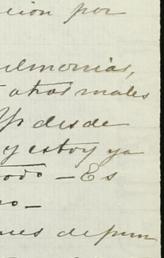 cion por
ulmonias,
otros males
desde
y estoy ya
todo - Es
no -
ues de pun